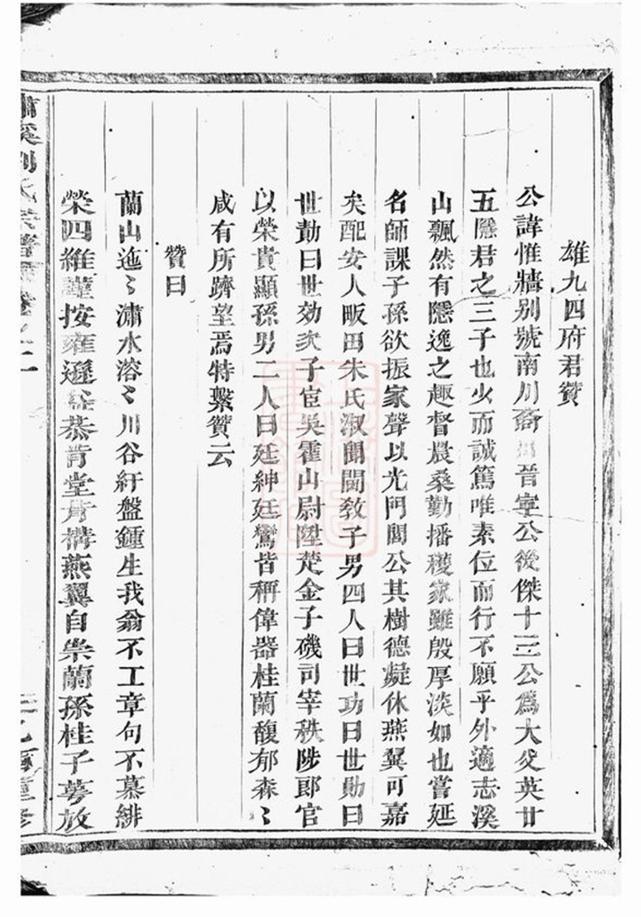 雄九四府君贊
公諱惟牆别號南川裔晉寧公後傑十三公爲大父英廿
五隱君之三子也少而誠篤唯素位而行不願乎外適志溪
山飄然有隱逸之趣督農桑勤播穫家雖殷厚淡如也嘗延
名師課子孫欲振家聲以光門閭公其樹德凝休燕翼可嘉
矣配安人畈田朱氏淑聞閫教子男四人曰世功曰世勛曰
世勣曰世効次子宦吳霍山尉陞楚金子磯司宰秩陟郎官
以榮貴顯孫男二人曰廷紳廷鸞皆稱偉器桂蘭馥郁森〻
咸有所躋望焉特繫贊云
贊曰
蘭山迤〻瀟水溶〻川谷紆盤鍾生我翁不工章句不慕緋
榮四維謹按雍遜恭肯堂肯構燕翼自崇蘭孫桂子萼放
溪劉氏宗譜卷之二
重修